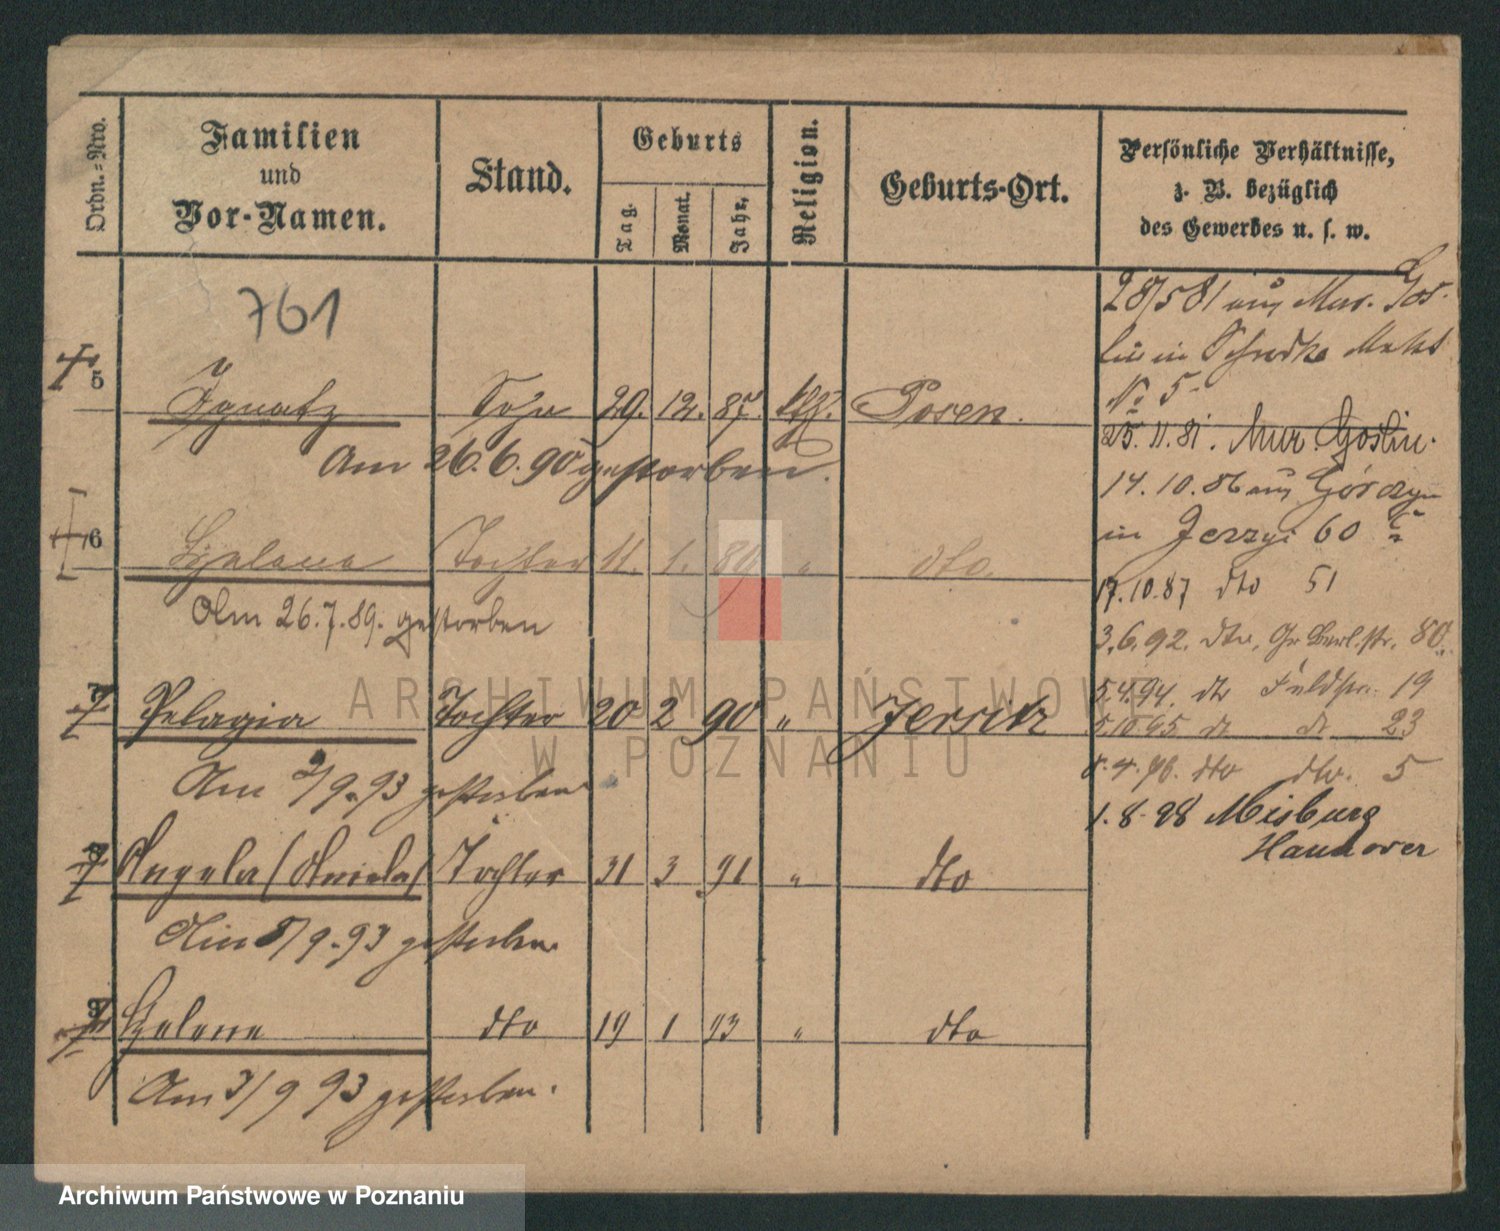 Ordn.-Nro.
Familien
und
Vor-Namen.
Stand.
Geburts
Tag.
Monat.
Jahr.
Religion.
Geburts-Ort.
Persönliche Verhältnisse,
z. B. bezüglich
des Gewerbes u. s. w.
761
5
Ignatz Sohn 29. 12. 87. kth. Posen.
Am 26.6.90 gestorben.
6
Helena Tochter 11. 1. 89 " dto.
Am 26.7.89. gestorben
7
Pelagia Tochter 20 2 90 " Jersitz
Am 2/9.93 gestorben
Angela (Aniela) Tochter 31 3 91 " dto
Am 8/9.93 gestorben
Helene dto 19 1 93 " dto
Am 3/9 93 gestorben.
28/5 81 aus Mur. Gos-
lin in
No 5
25. 11. 81. Mur. Goslin.
14. 10. 86 aus Górczyn
in Jerzyc 60
17.10.87 dto 51
3.6.92. dto, Gr Berl.str. 80.
5.4.94. dto Feldstr. 19
5.10.95 dto dto 23
8.4.96. dto dto. 5
1.8.98 Misburg
Hannover
ARCHIWUM PAŃSTWOWE
W POZNANIU
Archiwum Państwowe w Poznaniu